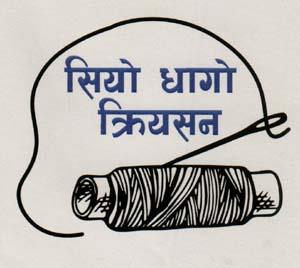 सियो धागो
क्रियसन